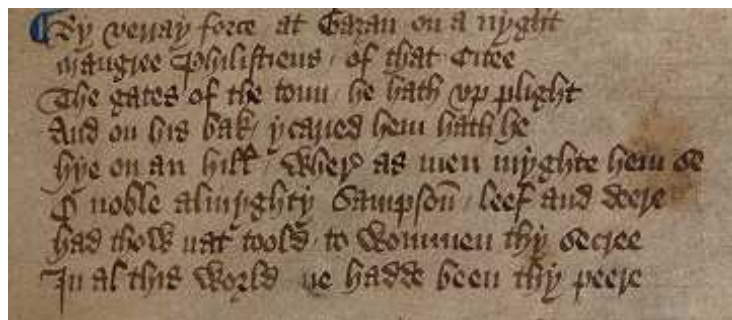 By verray force at Gazan on a nyght
maugree Philistiens / of that Citee
The gates of the toun / he hath vp plight
And on his bak / ycaried hem hath he
hye on an hill / Wher as men myghte hem se
O noble almyghty Sampson / leef and deere
had thow nat toold / to Wommen thy secree
In al this World ne hadde been thy peere